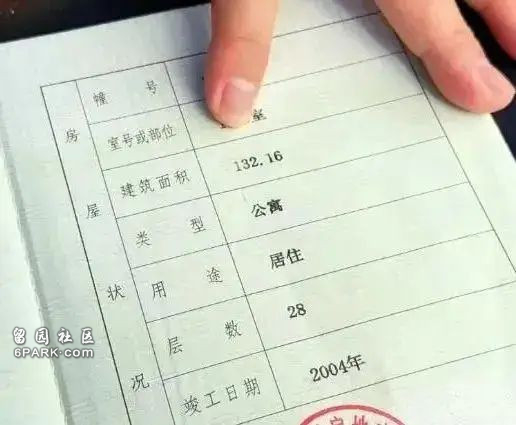 房屋状况
幢号
室号或部位 室
建筑面积 132.16
类型 公寓
用途 居住
层数 28
竣工日期 2004年
留园社区
6PARK.COM